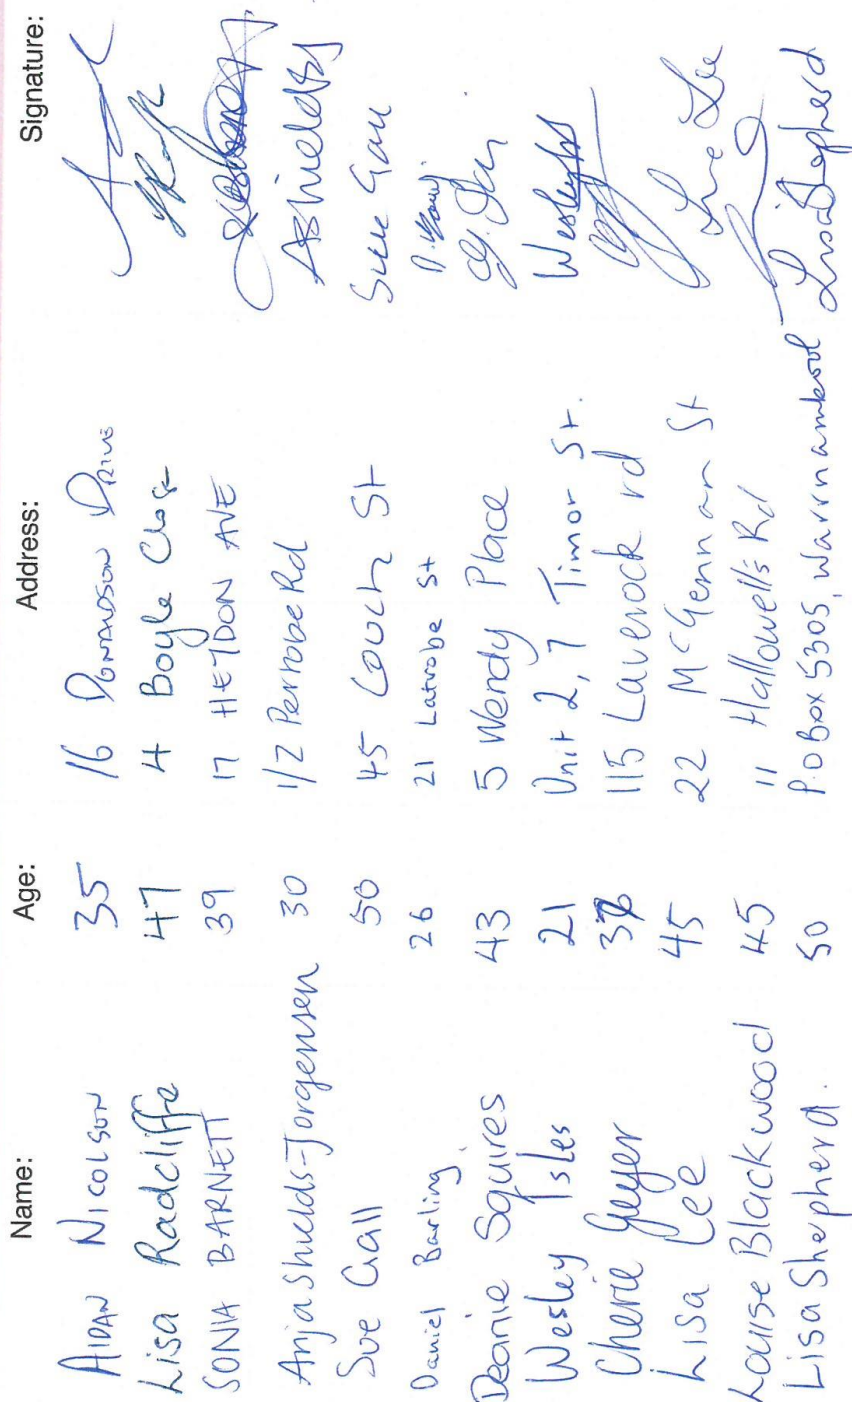 Name: Age: Address: Signature:
AIDAN NICOLSON 35 16 DONALDSON DRIVE
Lisa Radcliffe 47 4 Boyle Close
SONIA BARNETT 39 17 HEYDON AVE
Anja Shields-Jorgensen 30 1/2 Pertobe Rd AShieldsJ
Sue Gall 50 45 Couch St Sue Gall
Daniel Barling 26 21 Latrobe St
Deanie Squires 43 5 Wendy Place
Wesley Isles 21 Unit 2, 7 Timor St. Wesley
Cherie Geyer 115 Laverock rd
Lisa Lee 45 22 McGennan St Lisa Lee
Louise Blackwood 45 11 Hallowells Rd
Lisa Shepherd. 50 P.O Box 5305, Warrnambool Lisa Shepherd